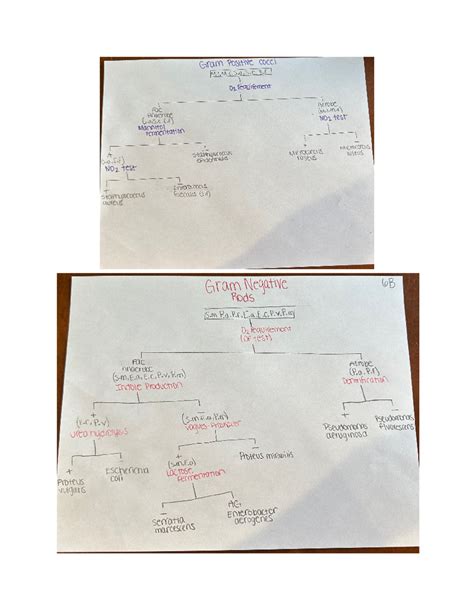 Gram Positive cocci
O₂ requirement
Fac
anaerobe
Mannitol
fermentation
Aerobe
NO₂ test
Staphylococcus
epidermidis
Micrococcus
roseus
Micrococcus
luteus
+
NO₂ test
Staphylococcus
aureus
Enterococcus
faecalis
Gram Negative
Rods
6B
(S.m, P.a, P.f, E.a, E.c, P.v, P.m)
O₂ requirement
(OF test)
Fac
anaerobe
(S.m, E.a, E.c, P.v, P.m)
Indole Production
Aerobe
(P.a, P.f)
Denitrification
+
(E.c, P.v)
Urea hydrolysis
-
(S.m, E.a, P.m)
+
Pseudomonas
aeruginosa
-
Pseudomonas
fluorescens
+
Proteus
vulgaris
-
Escherichia
coli
+
(S.m, E.a)
Lactose
Fermentation
-
Proteus mirabilis
-
Serratia
marcescens
AG
Enterobacter
aerogenes